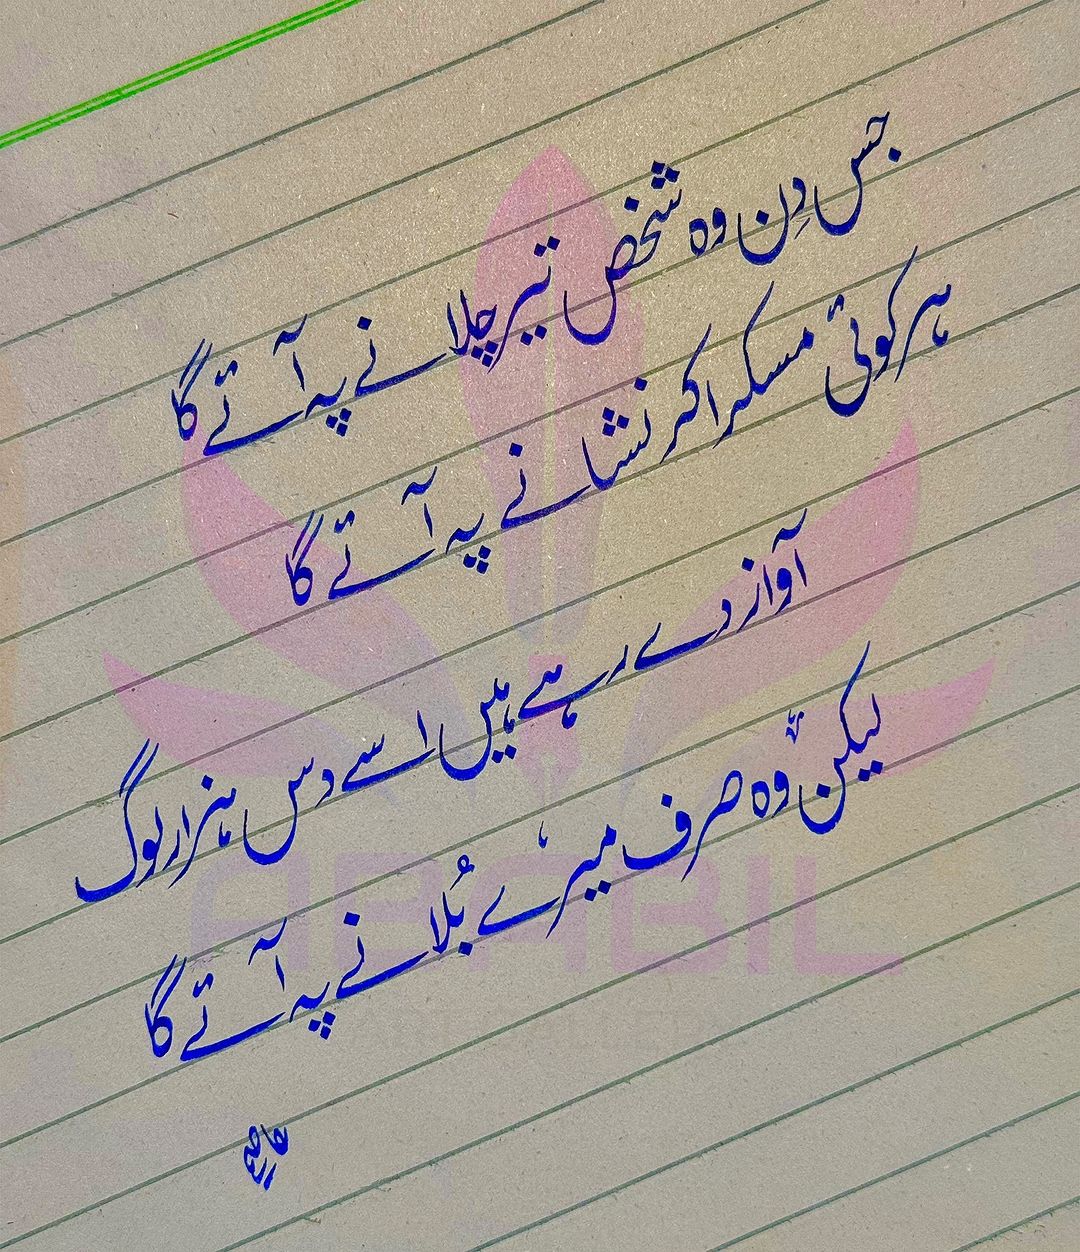 جس دِن وہ شخص تیر چلانے پہ آئے گا
ہر کوئی مسکرا کر نشانے پہ آئے گا
آواز دے رہے ہیں اسے دس ہزار لوگ
لیکن وہ صرف میرے بُلانے پہ آئے گا
ABABIL